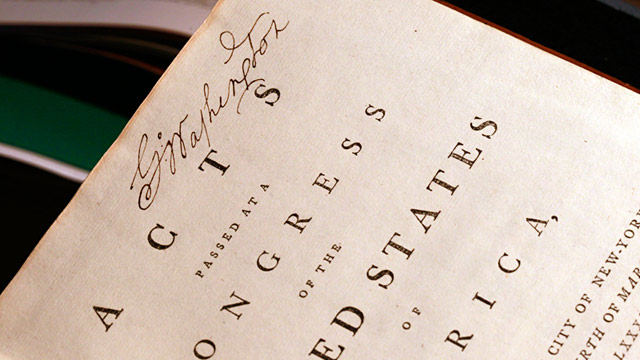 G:Washington
ACTS
PASSED AT A
ONGRESS
OF THE
ED STATES
OF
RICA,
CITY OF NEW-YORK
RTH OF MAR
LXXX